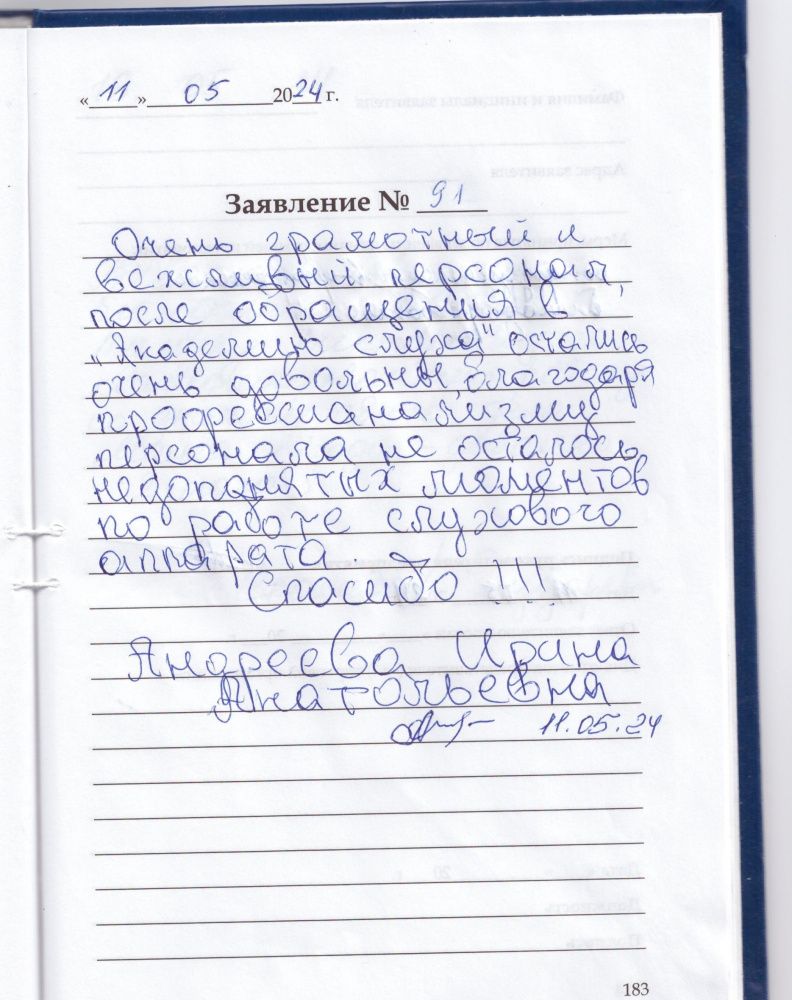 «11» 05 2024 г.
Заявление № 91
Очень грамотный и
вежливый персонал,
после обращения в
„Академию слуха" остались
очень довольны, благодаря
профессианализму
персонала не осталось
недопонятых моментов
по работе слухового
аппарата.
Спасибо !!!
Андреева Ирина
Анатольевна
11.05.24
183